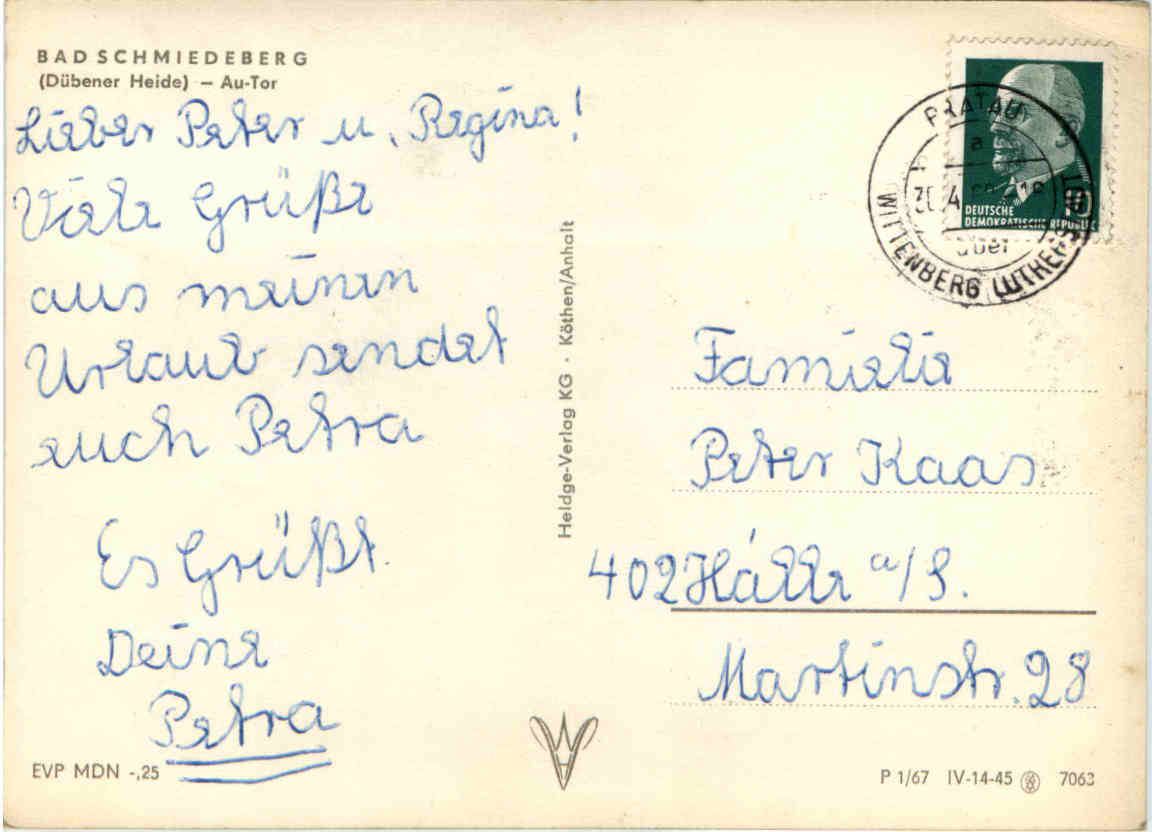 BAD SCHMIEDEBERG
(Dübener Heide) – Au-Tor
Lieber Peter u. Regina!
Viele Grüße
aus meinen
Urlaub sendet
euch Petra
Es Grüßt
Deine
Petra
EVP MDN -,25
Heldge-Verlag KG · Köthen/Anhalt
PRATAU
a
30.4. 18
über
WITTENBERG LUTHERST
10
DEUTSCHE
DEMOKRATISCHE REPUBLIK
Familie
Peter Kaas
402 Halle a/S.
Martinstr. 28
P 1/67 IV-14-45 7063